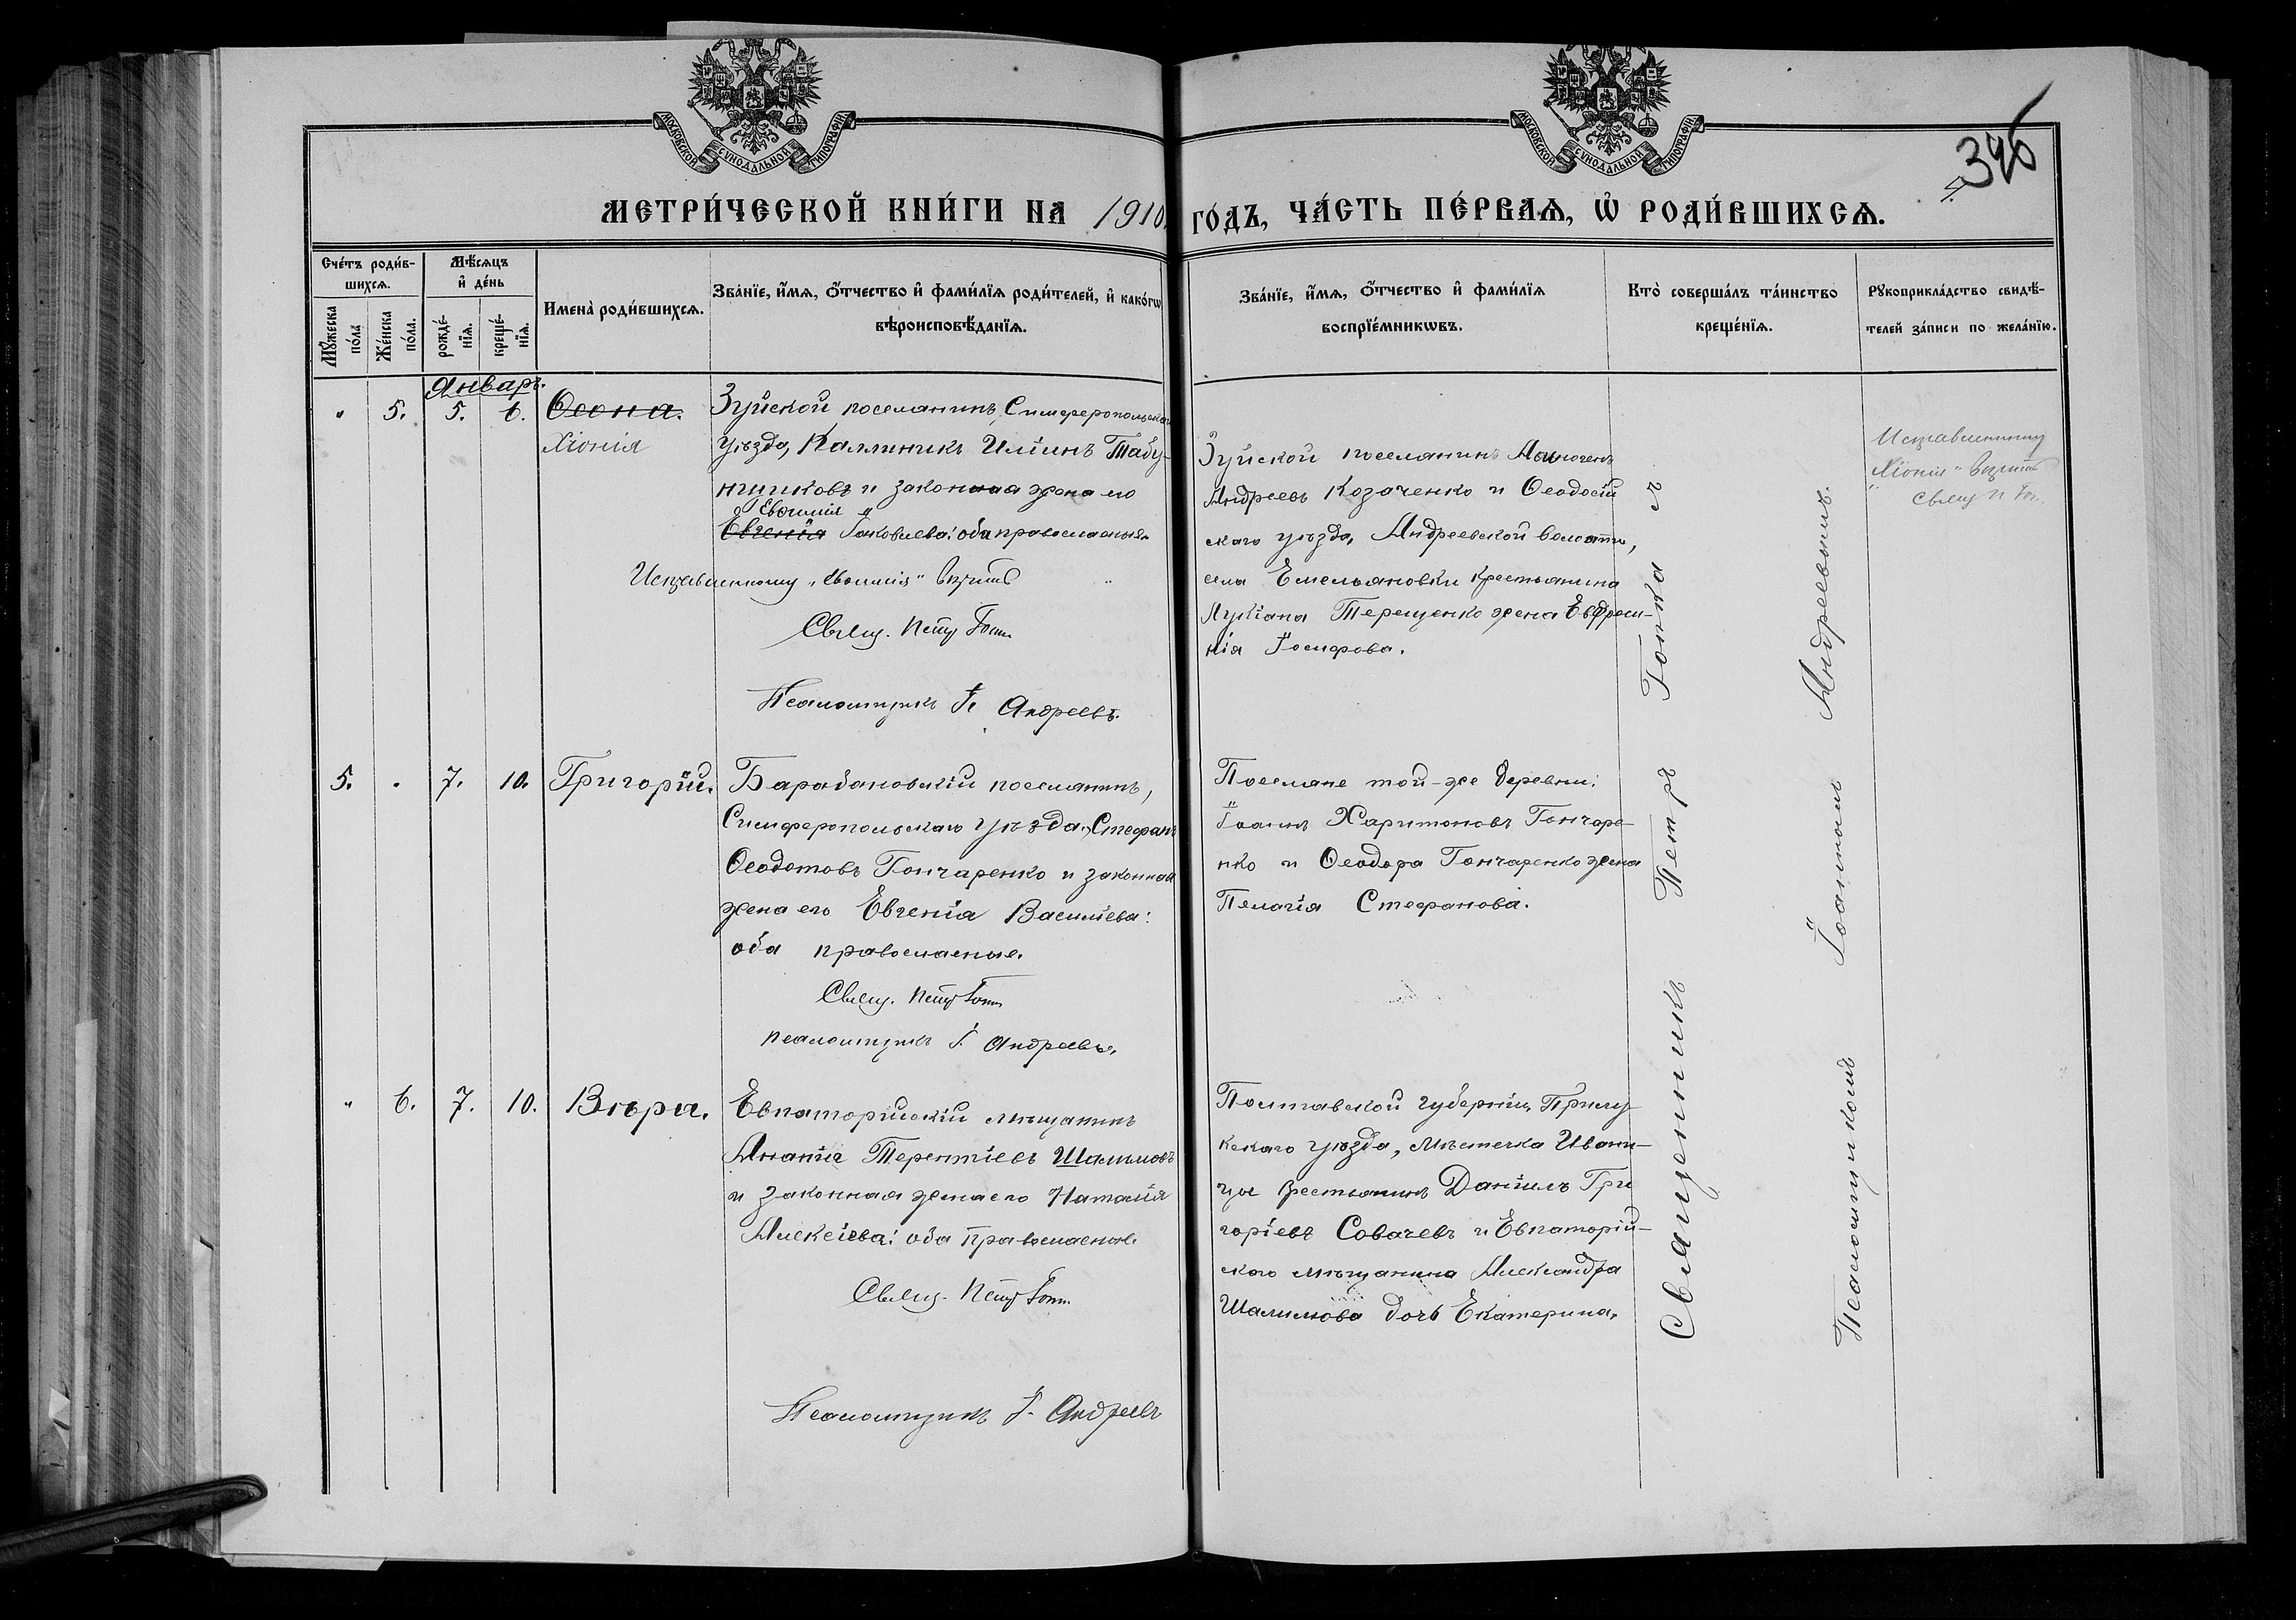 МОСКОВСКОЙ СѴНОДАЛЬНОЙ ТИПОГРАФІИ
МОСКОВСКОЙ СѴНОДАЛЬНОЙ ТИПОГРАФІИ
346
5.
МЕТРИ́ЧЕСКОЙ КНИ́ГИ НА 1910 ГО́ДЪ, ЧА́СТЬ ПЕ́РВАѦ, Ѡ҆ РОДИ́ВШИХСѦ.
Сче́тъ роди́в-
шихсѧ.
Мꙋ́жеска по́ла
Же́нска по́ла.
Мѣ́сѧцъ
и҆ де́нь
рожде́-
нїѧ.
креще́-
нїѧ.
Имена̀ роди́вшихсѧ.
Зва́нїе, и҆́мѧ, ѻ҆́тчество и҆ фами́лїѧ роди́телей, и҆ како́гѡ
вѣроисповѣ́данїѧ.
Зва́нїе, и҆́мѧ, ѻ҆́тчество и҆ фами́лїѧ
воспрїе́мникѡвъ.
Кто̀ соверша́лъ та́инство
креще́нїѧ.
Рꙋкоприкла́дство свидѣ́-
телей за́писи по жела́нїю.
Январь.
" 5. 5. 6. Ѳеона.
Хіонія
Зуйской поселянинъ, Симферопольскаго
уѣзда, Каллиникъ Иліинъ Табу-
нщиковъ и законная жена его
Евѳимія
Евгенія Іаковлева: оба православные.
Исправленному „Евѳимія" вѣрить
Свящ. Петръ Гопка
Псаломщикъ І. Андреевъ.
Зуйской поселянинъ
Андреевъ Козаченко и Ѳеодосій
скаго уѣзда, Андреевской волости,
села Емельяновки крестьянина
Лукіана Терещенко жена Евфроси-
нія Іосифова.
Исправленному
„Хіонія" вѣрить
Свящ. П. Гоп.
5. " 7. 10. Григорій.
Барабановскій поселянинъ,
Симферопольскаго уѣзда, Стефанъ
Ѳеодотовъ Гончаренко и законная
жена его Евгенія Василіева:
оба православные.
Свящ. Петръ Гопка
Псаломщикъ І. Андреевъ.
Поселяне той-же деревни:
Іоаннъ Харитоновъ Гончаре-
нко и Ѳеодора Гончаренко жена
Пелагія Стефанова.
" 6. 7. 10. Вѣра.
Евпаторійскій мѣщанинъ
Ананій Терентіевъ Шалимовъ
и законная жена его Наталія
Алексіева: оба православные.
Свящ. Петръ Гопка
Псаломщикъ І. Андреевъ
Полтавской губерніи, Прилу-
кскаго уѣзда, мѣстечка Ивани-
цы крестьянинъ Даніилъ Гри
горіевъ Собачевъ и Евпаторій-
скаго мѣщанина Александра
Шалимова дочь Екатерина.
Священникъ Петръ Гопка съ
Псаломщикомъ Іоанномъ Андреевымъ.